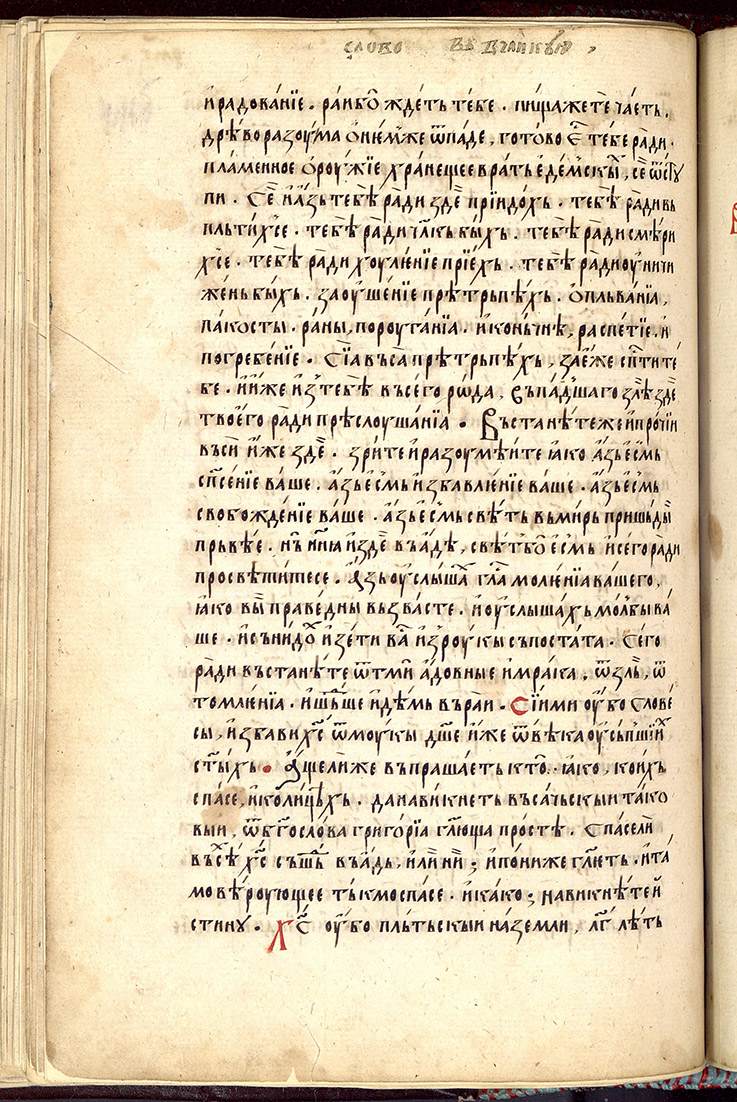 слово въ великꙋю
и҆ радова́нїе . ра́и бѡ҆ жде́ть те́бе . пи́ща жете̏ ча́еть .
дрѣ́во разꙋма ѻ҆ нем́же ѿпаде , гото́во є҆̑ те́бе ра́ди .
пла́менное ѻ҆роу́жїе хранещее врать е҆де́мскы̏ , се̏ ѿстꙋ
пи . Се̏ и҆ а҆́зь тебѣ̀ ра́ди зде̏ прїидо́хь . тебѣ̀ ра́ди вь
пльти́ х҃се . тебѣ̀ ра́ди чл҃кь бы́хь . тебѣ̀ ра́ди смѣ́ри
х҃се . тебѣ̀ ра́ди хоуле́нїе прїе́хь . тебѣ̀ ра́ди оу҆ничи
же́нь бы́хь . за оу҆ше́нїе прѣтрьпѣ́хь . ѻ҆плъва́нїа ,
па́косты . ра́ны , пороуга́нїа . и҆ коньчнѣ́ , распе́тїе . и҆
погребе́нїе . Сїа въса прѣтрьпѣ́хь , за е҆́же сп҃сти те́
бе . и҆ и҆́же и҆з̾ те́бе въсего рѡ́да , съпа́дшаго злѣ̀ зде̏
твое́го ра́ди прѣслоуша́нїа . Въстанѣ́те же и҆ про́чїи
въси и҆́же зде̏ . зри́те и҆ разоумѣ́ите ꙗ҆ко а҆́зь е҆́смь
сп҃се́нїе ва́ше . а҆́зь е҆́смь и҆збавле́нїе ва́ше . а҆́зь е҆́смь
свобожде́нїе ва́ше . а҆́зь е҆́смь свѣ́ть въ ми́рь пришьды̏
прьвѣ́е . нь̏ и҆ нн҃ꙗ и҆ зде̏ въ а҆́дѣ , свѣ́т бѡ̏ е҆́смь и҆ сего ра́ди
просвѣти́тесе . А҆́зь оу҆слыша́х гл҃а моле́нїа ва́шего ,
ꙗ҆ко вы̏ пра́ведны възва́сте . и҆ оу҆слышахь мѡл́бы ва́
ше . и҆ съни́до̑х и҆зе́ти ва̏ и҆з̾ роу́кы съпоста́та . Сего
ра́ди въстанѣ́те ѿ тмы̏ а҆́довные и҆ мра́ка , ѿ зль̏ , ѿ
томле́нїа . и҆ шь́дше и҆де́мь въ ра́и . Сїими оу҆̀бо слове́
сы , и҆збави х҃с ѿ моу́кы д҃ше и҆же ѿ вѣ́ка оу҆сь́пшїи̑х
ст҃ы́хь . А҆́ще ли́же въпраша́еть кто̏ . ꙗ҆ко , кои́хь
сп҃асе , и҆ коли́цѣхь . да нави́кнеть въсачьскыи тако
выи , ѿ бг҃осло́ва григо́рїа гл҃юща про́стѣ . Спасе ли̏
въсѣ́х х҃с сьшь́дь въ а҆́дь , и҆ли̏ нѝ ; и҆ пони́же гл҃еть . и҆ та́
мо вѣ́роующее ть́кмо спасе . и҆ ка́ко ; навикнѣ́те и҆́
стинꙋ . Х҃с оу҆̀бо пль́тьскыи на земли , л҃г лѣ́ть